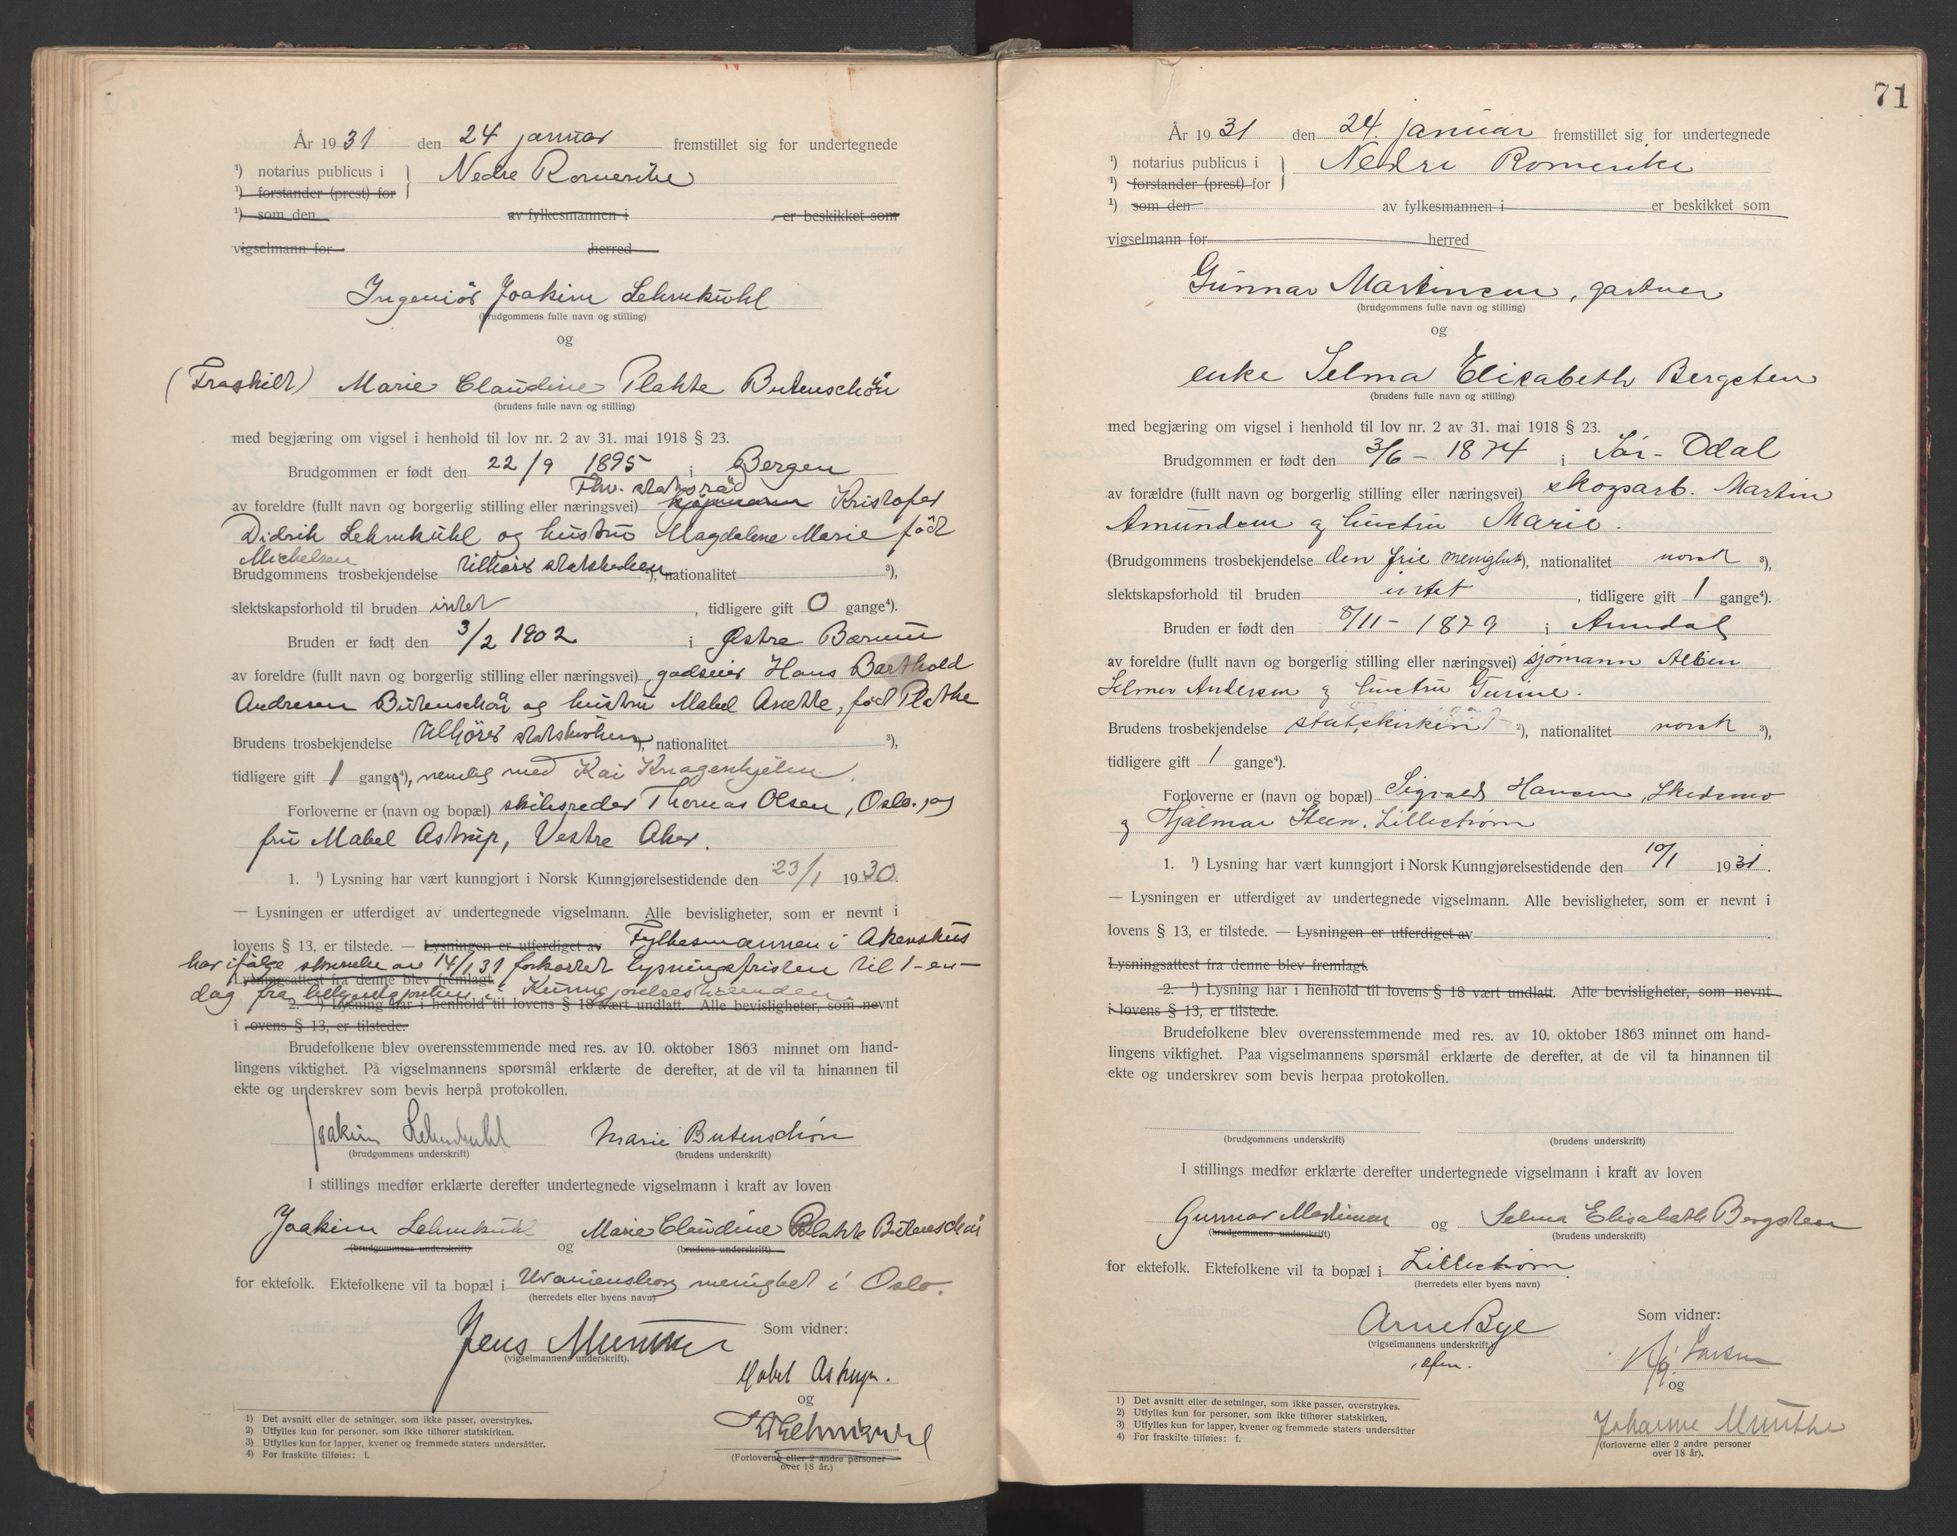 År 1931 den 24 januar fremstillet sig for undertegnede
¹) notarius publicus i } Nedre Romerike
¹) forstander (prest) for
¹) som den av fylkesmannen i er beskikket som
vigselmann for herred
Ingeniör Joakim Lehmkuhl
(brudgommens fulle navn og stilling)
og
(Fraskilt) Marie Claudine Plahte Butenschön
(brudens fulle navn og stilling)
med begjæring om vigsel i henhold til lov nr. 2 av 31. mai 1918 § 23.
Brudgommen er født den 22/9 1895 i Bergen
Fhv. statsråd
av foreldre (fullt navn og borgerlig stilling eller næringsvei) kjøpmann Kristofer
Didrik Lehmkuhl og hustru Magdalene Marie født
Michelsen
Brudgommens trosbekjendelse tilhører statskirken ²), nationalitet ³),
slektskapsforhold til bruden intet, tidligere gift 0 gange⁴).
Bruden er født den 3/2 1902 i Østre Bærum
av foreldre (fullt navn og borgerlig stilling eller næringsvei) godseier Hans Barthold
Andresen Butenschön og hustru Mabel Anette, født Plahte
Brudens trosbekjendelse tilhører statskirken ²), nationalitet ³),
tidligere gift 1 gange⁴), nemlig med Kai Knagenhjelm.
Forloverne er (navn og bopæl) skibsreder Thomas Olsen, Oslo, og
fru Mabel Astrup, Vestre Aker.
1. ¹) Lysning har vært kunngjort i Norsk Kunngjørelsestidende den 23/1 1930.
— Lysningen er utferdiget av undertegnede vigselmann. Alle bevisligheter, som er nevnt i
lovens § 13, er tilstede. — Lysningen er utferdiget av Fylkesmannen i Akershus
har ifølge skrivelse av 14/1 31 forkortet lysningsfristen til 1 - en -
Lysningsattest fra denne blev fremlagt
dag fra bekjentgjørelsen i Kunngjørelsestidenden.
2. ¹) Lysning har i henhold til lovens § 18 vært undlatt. Alle bevisligheter, som er nevnt
i lovens § 13, er tilstede.
Brudefolkene blev overensstemmende med res. av 10. oktober 1863 minnet om hand-
lingens viktighet. På vigselmannens spørsmål erklærte de derefter, at de vil ta hinannen til
ekte og underskrev som bevis herpå protokollen.
Joakim Lehmkuhl Marie Butenschön
(brudgommens underskrift) (brudens underskrift)
I stillings medfør erklærte derefter undertegnede vigselmann i kraft av loven
Joakim Lehmkuhl og Marie Claudine Plahte Butenschön
(brudgommens underskrift) (brudens underskrift)
for ektefolk. Ektefolkene vil ta bopæl i Uranienborg menighet i Oslo.
(herredets eller byens navn)
Jens Munthe Som vidner:
(vigselmannens underskrift).
Mabel Astrup.
og
KLehmkuhl
(Forloverne eller 2 andre personer
over 18 år.)
1) Det avsnitt eller de setninger, som ikke passer, overstrykes.
2) Utfylles kun for personer, som ikke tilhører statskirken.
3) Utfylles kun for lapper, kvener og fremmede staters undersåtter.
4) For fraskilte tilføies: f.
71
År 1931 den 24. januar fremstillet sig for undertegnede
¹) notarius publicus i } Nedre Romerike
¹) forstander (prest) for
¹) som den av fylkesmannen i er beskikket som
vigselmann for herred
Gunnar Martinsen, gartner
(brudgommens fulle navn og stilling)
og
enke Selma Elisabeth Bergsten
(brudens fulle navn og stilling)
med begjæring om vigsel i henhold til lov nr. 2 av 31. mai 1918 § 23.
Brudgommen er født den 3/6 - 1874 i Sør-Odal
av forældre (fullt navn og borgerlig stilling eller næringsvei) skogsarb. Martin
Amundsen og hustru Marie.
(Brudgommens trosbekjendelse den frie menighet ²), nationalitet norsk ³),
slektskapsforhold til bruden intet, tidligere gift 1 gange⁴).
Bruden er født den /11 - 1879 i Arendal
av foreldre (fullt navn og borgerlig stilling eller næringsvei) sjømann Albin
Selmer Andersen og hustru Gunne.
Brudens trosbekjendelse statskirken ²), nationalitet norsk ³),
tidligere gift 1 gange⁴).
Forloverne er (navn og bopæl) Sigvald Hansen, Skedsmo
og Hjalmar Steen, Lillestrøm
1. ¹) Lysning har vært kunngjort i Norsk Kunngjørelsestidende den 10/1 1931.
— Lysningen er utferdiget av undertegnede vigselmann. Alle bevisligheter, som er nevnt i
lovens § 13, er tilstede. — Lysningen er utferdiget av
Lysningsattest fra denne blev fremlagt
2. ¹) Lysning har i henhold til lovens § 18 vært undlatt. Alle bevisligheter, som nevnt
i lovens § 13, er tilstede.
Brudefolkene blev overensstemmende med res. av 10. oktober 1863 minnet om hand-
lingens viktighet. Paa vigselmannens spørsmål erklærte de derefter, at de vil ta hinannen til
ekte og underskrev som bevis herpaa protokollen.
(brudgommens underskrift) (brudens underskrift)
I stillings medfør erklærte derefter undertegnede vigselmann i kraft av loven
Gunnar Martinsen og Selma Elisabeth Bergsteen
(brudgommens underskrift) (brudens underskrift)
for ektefolk. Ektefolkene vil ta bopæl i Lillestrøm.
(herredets eller byens navn)
Arne Bye Som vidner:
(vigselmannens underskrift)
Larsen
og
Johanne Munthe
(forloverne eller 2 andre personer
over 18 år).
1) Det avsnitt eller de setninger, som ikke passer, overstrykes.
2) Utfylles kun for personer, som ikke tilhører statskirken.
3) Utfylles kun for lapper, kvener og fremmede staters undersåtter
4) For fraskilte tilføies: f.